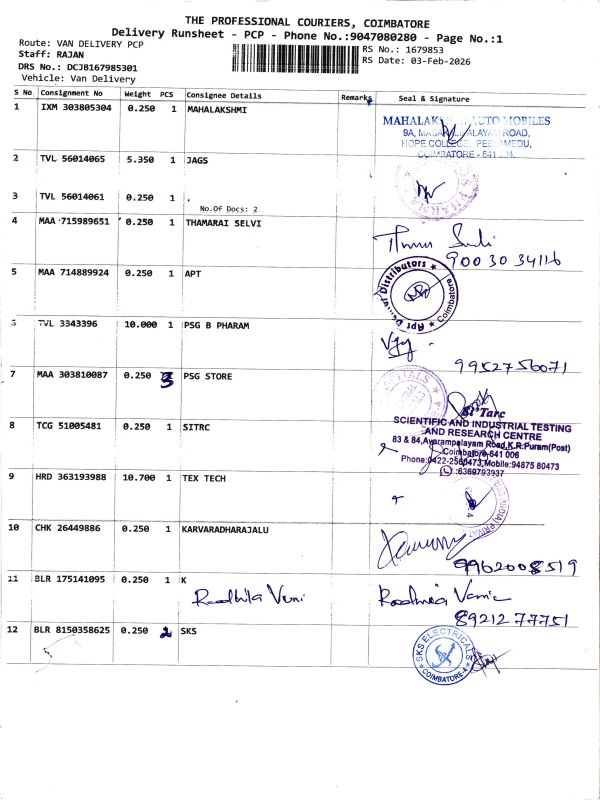 THE PROFESSIONAL COURIERS, COIMBATORE
Delivery Runsheet - PCP - Phone No.:9047080280 - Page No.:1
Route: VAN DELIVERY PCP
Staff: RAJAN
RS No.: 1679853
DRS No.: DCJB167985301
RS Date: 03-Feb-2026
Vehicle: Van Delivery
S No Consignment No Weight PCS Consignee Details Remarks Seal & Signature
1 IXM 303805304 0.250 1 MAHALAKSHMI
AUTO MOBILES
ROAD,
HOPE COLLEGE,
COIMBATORE - 641
2 TVL 56014065 5.350 1 JAGS
3 TVL 56014061 0.250 1 .
No.Of Docs: 2
4 MAA 715989651 0.250 1 THAMARAI SELVI
90030 34116
5 MAA 714889924 0.250 1 APT
Distributors
Coimbatore
Apt
TVL 3343396 10.000 1 PSG B PHARAM
9952756071
7 MAA 303810087 0.250 3 PSG STORE
Si'Tarc
SCIENTIFIC AND INDUSTRIAL TESTING
AND RESEARCH CENTRE
83 & 84, Avarampalayam Road, K.R.Puram(Post)
8 TCG 51005481 0.250 1 SITRC
Coimbatore-641 006
Phone:0422-2560473, Mobile:94875 80473
9 HRD 363193988 10.700 1 TEX TECH
10 CHK 26449886 0.250 1 KARVARADHARAJALU
9962008519
11 BLR 175141095 0.250 1 K
8921277751
12 BLR 8150358625 0.250 2 SKS
SKS ELECTRICALS
COIMBATORE-4